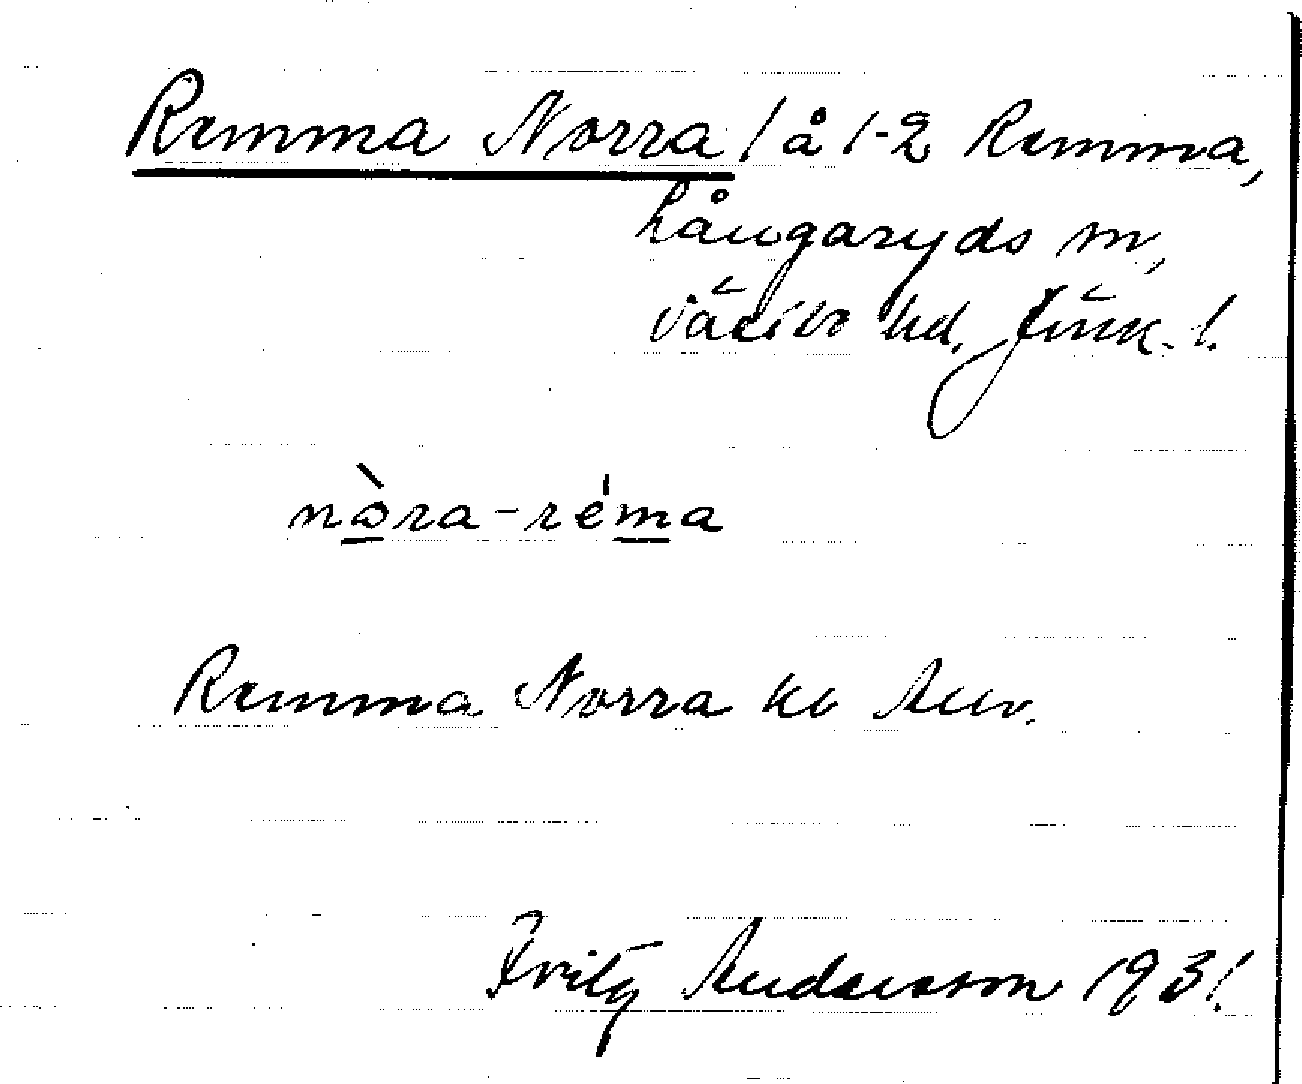 Remma Norra / å 1-2 Remma,
Långaryds sn,
Västbo hd, Jönk. l.
nòra-réma
Remma Norra kb Anv.
Fritz Andersson 1931.